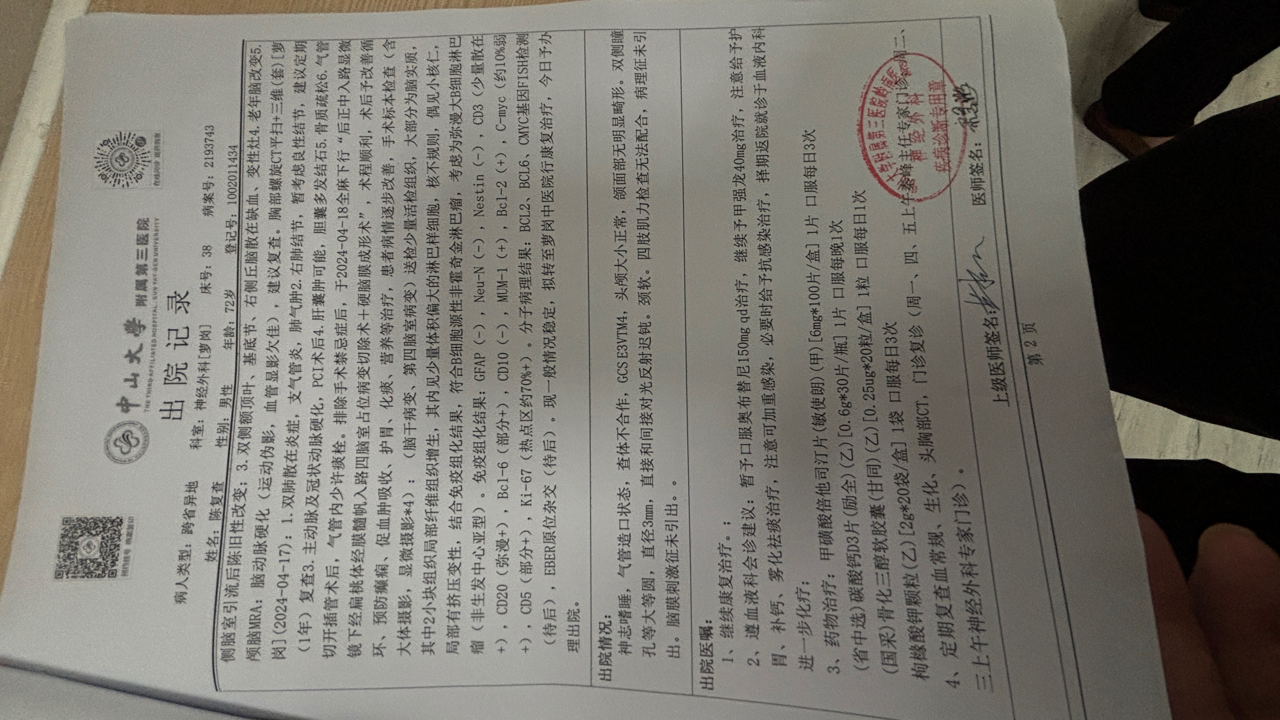 中山大學 附属第三医院
THE THIRD AFFILIATED HOSPITAL, SUN YAT-SEN UNIVERSITY
出院记录
病人类型: 跨省异地 科室: 神经外科[萝岗] 床号: 38 病案号: 2193743
姓名: 陈复查 性别: 男性 年龄: 72岁 登记号: 1002011434
侧脑室引流后陈旧性改变; 3. 双侧额顶叶、基底节、右侧丘脑散在缺血、变性灶4. 老年脑改变5.
颅脑MRA: 脑动脉硬化(运动伪影, 血管显影欠佳), 建议复查。胸部螺旋CT平扫+三维(套)[萝
岗](2024-04-17): 1. 双肺散在炎症, 支气管炎, 肺气肿2. 右肺结节, 暂考虑良性结节, 建议定期
(1年)复查3. 主动脉及冠状动脉硬化, PCI术后4. 肝囊肿可能, 胆囊多发结石5. 骨质疏松6. 气管
切开插管术后, 气管内少许痰栓。排除手术禁忌症后, 于2024-04-18全麻下行“后正中入路显微
镜下经扁桃体经膜髓帆入路四脑室占位病变切除术+硬脑膜成形术”, 术程顺利, 术后予改善循
环、预防癫痫、促血肿吸收、护胃、化痰、营养等治疗, 患者病情逐步改善, 手术标本检查(含
大体摄影, 显微摄影*4): (脑干病变、第四脑室病变)送检少量活检组织, 大部分为脑实质,
其中2小块组织局部纤维组织增生, 其内见少量体积偏大的淋巴样细胞, 核不规则, 偶见小核仁,
局部有挤压变性, 结合免疫组化结果, 符合B细胞源性非霍奇金淋巴瘤, 考虑为弥漫大B细胞淋巴
瘤(非生发中心亚型)。免疫组化结果: GFAP(-), Neu-N(-), Nestin(-), CD3(少量散在
+), CD20(弥漫+), Bcl-6(部分+), CD10(-), MUM-1(+), Bcl-2(+), C-myc(约10%弱
+), CD5(部分+), Ki-67(热点区约70%+)。分子病理结果: BCL2、BCL6、CMYC基因FISH检测
(待后), EBER原位杂交(待后)。现一般情况稳定, 拟转至萝岗中医院行康复治疗, 今日予办
理出院。
出院情况:
神志嗜睡, 气管造口状态, 查体不合作, GCS E3VTM4, 头颅大小正常, 颌面部无明显畸形。双侧瞳
孔等大等圆, 直径3mm, 直接和间接对光反射迟钝。颈软。四肢肌力检查无法配合, 病理征未引
出。脑膜刺激征未引出。。
出院医嘱:
1、继续康复治疗。;
2、遵血液科会诊建议: 暂予口服奥布替尼150mg qd治疗, 继续予甲强龙40mg治疗, 注意给予护
胃、补钙、雾化祛痰治疗, 注意可加重感染, 必要时给予抗感染治疗, 择期返院就诊于血液内科
进一步化疗;
3、药物治疗: 甲磺酸倍他司汀片(敏使朗)(甲)[6mg*100片/盒] 1片 口服每日3次
(省中选)碳酸钙D3片(励全)(乙)[0.6g*30片/瓶] 1片 口服每晚1次
(国采)骨化三醇软胶囊(甘同)(乙)[0.25ug*20粒/盒] 1粒 口服每日1次
枸橼酸钾颗粒(乙)[2g*20袋/盒] 1袋 口服每日3次
4、定期复查血常规、生化、头胸部CT, 门诊复诊(周一、四、五上午秦峰主任专家门诊、周二、
三上午神经外科专家门诊)。
神经外科
疾病诊断专用章
上级医师签名: 医师签名:
第 2 页